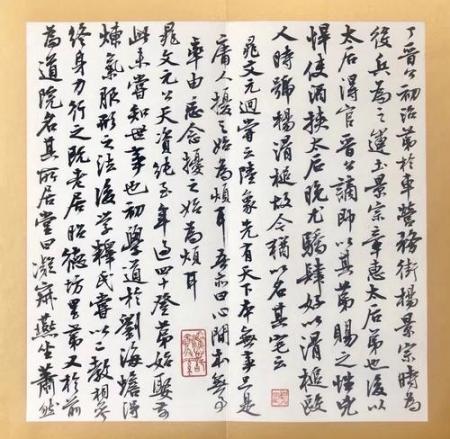 丁晉公初治第於車營務街楊景宗時為
役兵為之運土景宗章惠太后弟也後以
太后得官晉公謫即以其第賜之性兇
悍使酒挾太后晚尤驕肆好以滑槌毆
人時號楊滑槌故今猶以名其宅云
晁文元迥嘗云陸象先有天下本無事只是
庸人擾之始為煩耳吾亦曰心間本無事
率由妄念擾之始為煩耳
晁文元公天資純至年過四十登第始娶前
此未嘗知世事也初學道於劉海蟾得
煉氣服形之法後學釋氏嘗以二教相參
終身力行之既老居昭德坊里第又於前
為道院名其所居堂曰凝寂燕坐蕭然